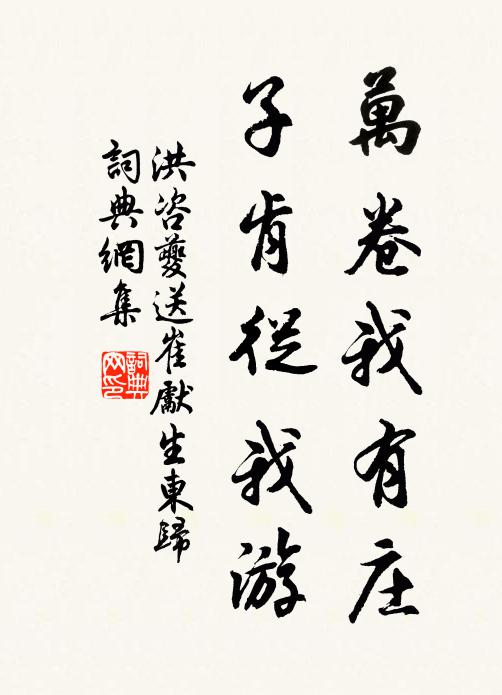 萬卷我有庄
子肯從我游
洪咨夔送崔獻生東歸
詞典網集
詞典网印